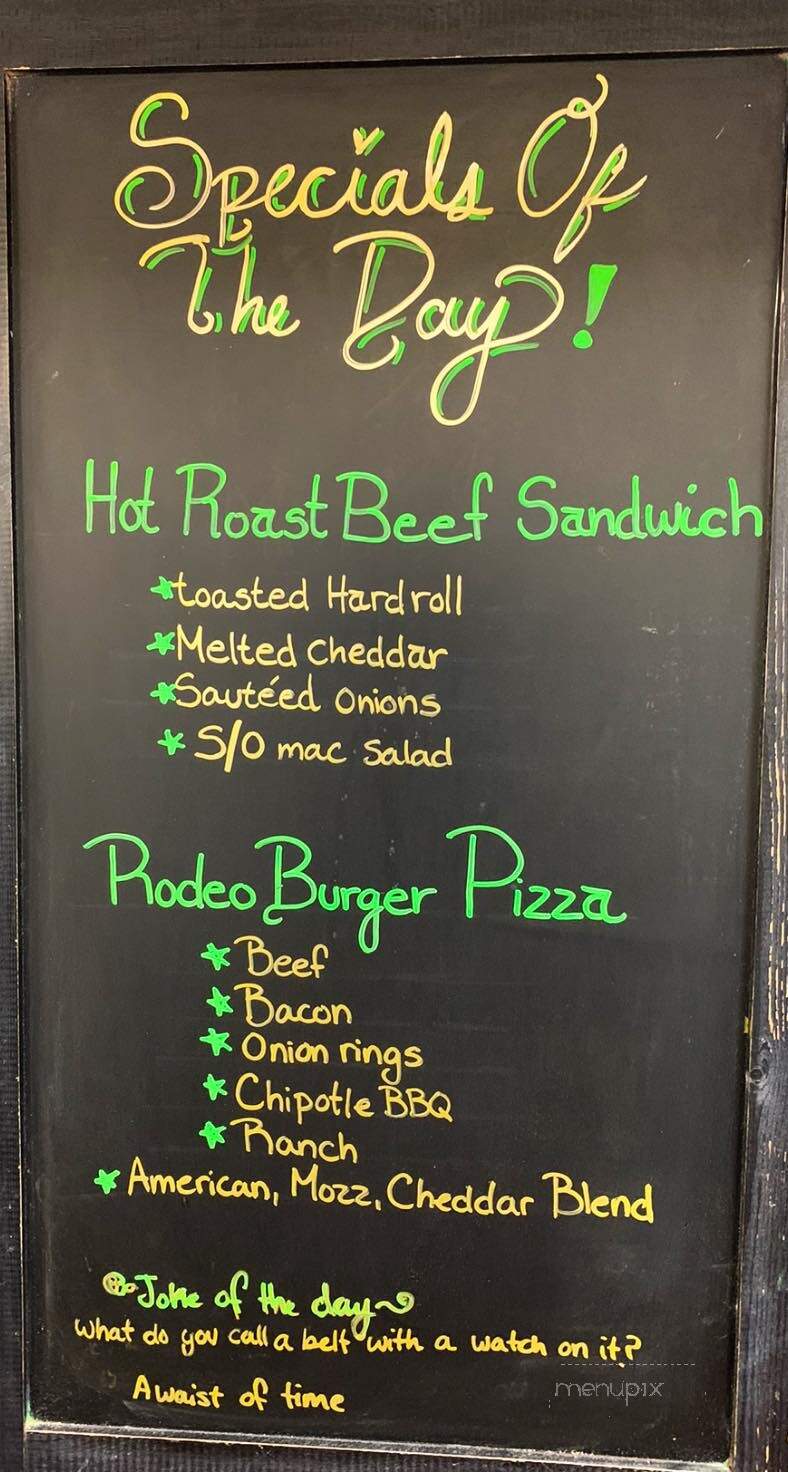 Specials Of
The Day!
Hot Roast Beef Sandwich
toasted Hard roll
Melted Cheddar
Sautéed Onions
S/O mac Salad
Rodeo Burger Pizza
Beef
Bacon
Onion rings
Chipotle BBQ
Ranch
American, Mozz, Cheddar Blend
Joke of the day
What do you call a belt with a watch on it?
A waist of time
menupix